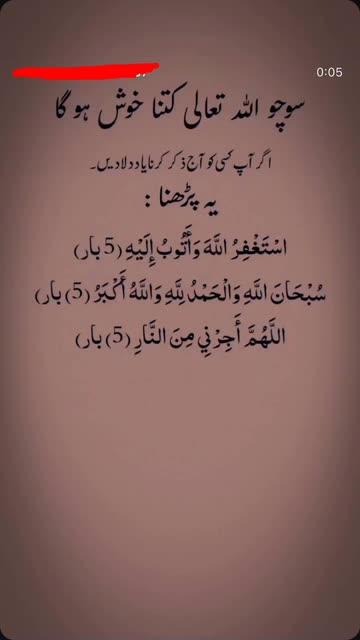 0:05
سوچو اللہ تعالی کتنا خوش ہو گا
اگر آپ کسی کو آج ذکر کرنا یاد دلا دیں۔
یہ پڑھنا :
اسْتَغْفِرُ اللَّهَ وَأَتُوبُ إِلَيْهِ (5 بار)
سُبْحَانَ اللَّهِ وَالْحَمْدُ لِلَّهِ وَاللَّهُ أَكْبَرُ (5) بار)
اللَّهُمَّ أَجِرْنِي مِنَ النَّارِ (5) بار)